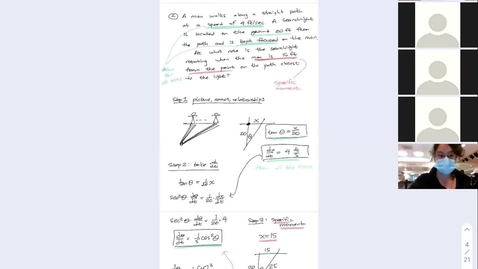 A man walks along a straight path
at a speed of 4 ft/sec. A searchlight
is located on the ground 20 ft from
the path and is kept focused on the man.
At what rate is the searchlight
rotating when the man is 15 ft
from the point on the path closest
to the light?
specific
moment
Step 1 picture, names, relationships
x
20
θ
tan θ = x/20
dx/dt = 4 ft/s
Step 2: take d/dt
tan θ = 1/20 x
sec²θ dθ/dt = 1/20 dx/dt
sec²θ dθ/dt = 1/20 · 4
dθ/dt = 1/5 cos²θ
Step 3: Specific
moment
x=15
15
20
25
4
21